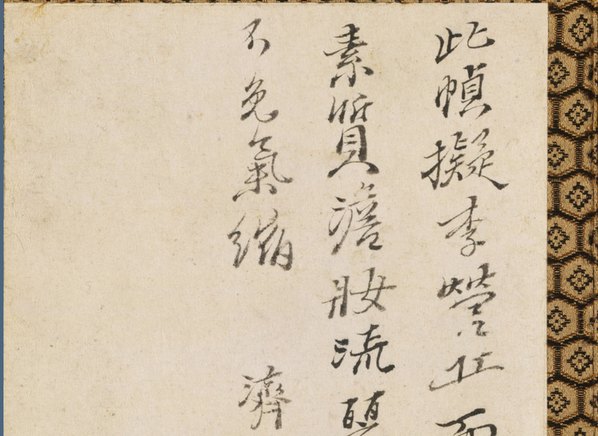 此幀擬李營丘而
素質澹妝流
不免氣縮　濟